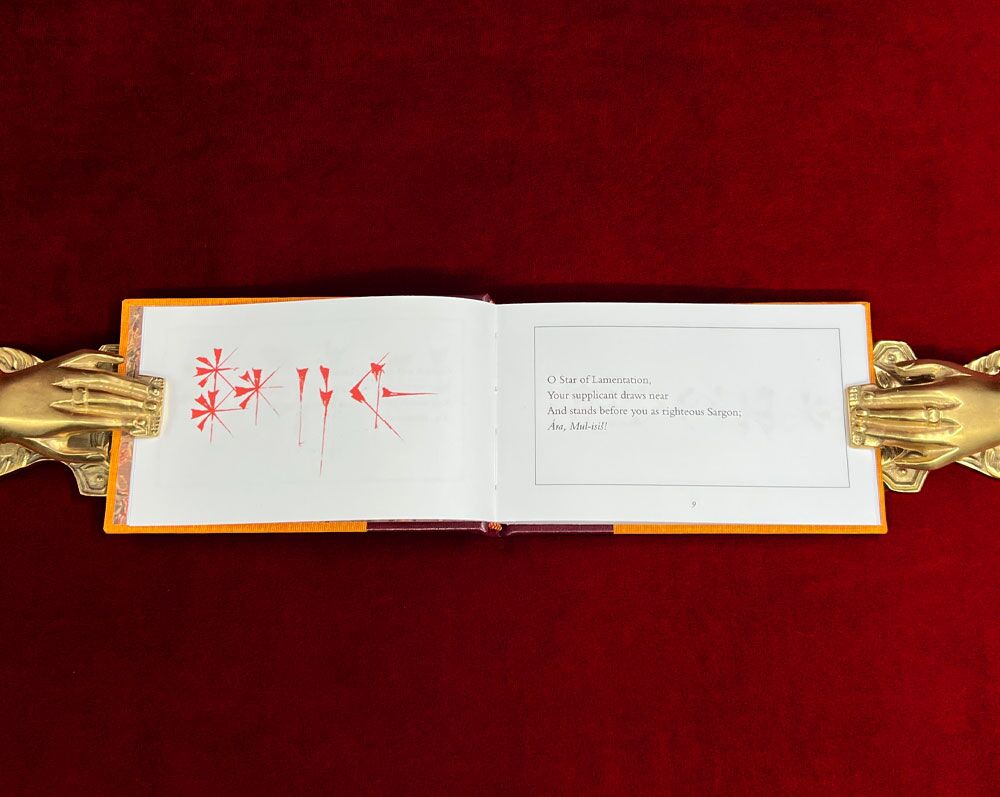 𒀯𒀀𒅆
O Star of Lamentation,
Your supplicant draws near
And stands before you as righteous Sargon;
Ara, Mul-isiš!
9